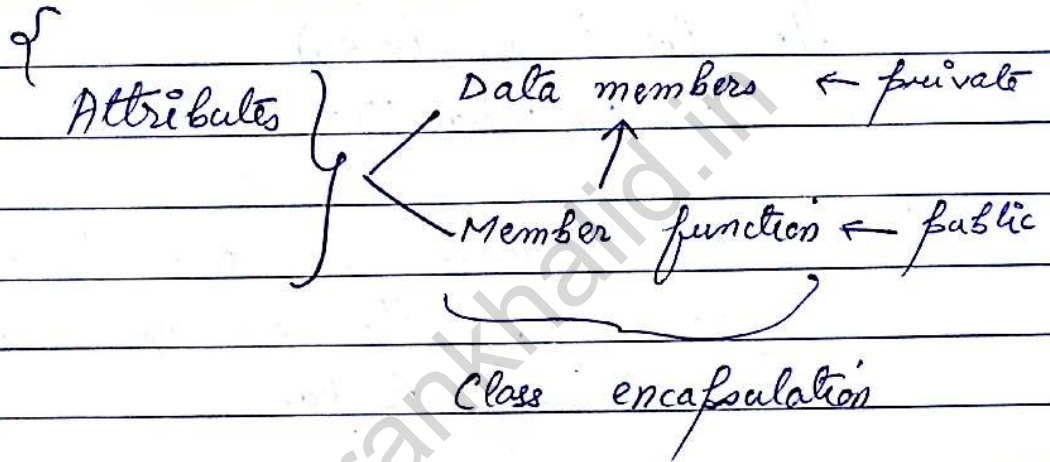 {
Attributes } Data members ← private
Member function ← public
Class encapsulation
rankhalid.in